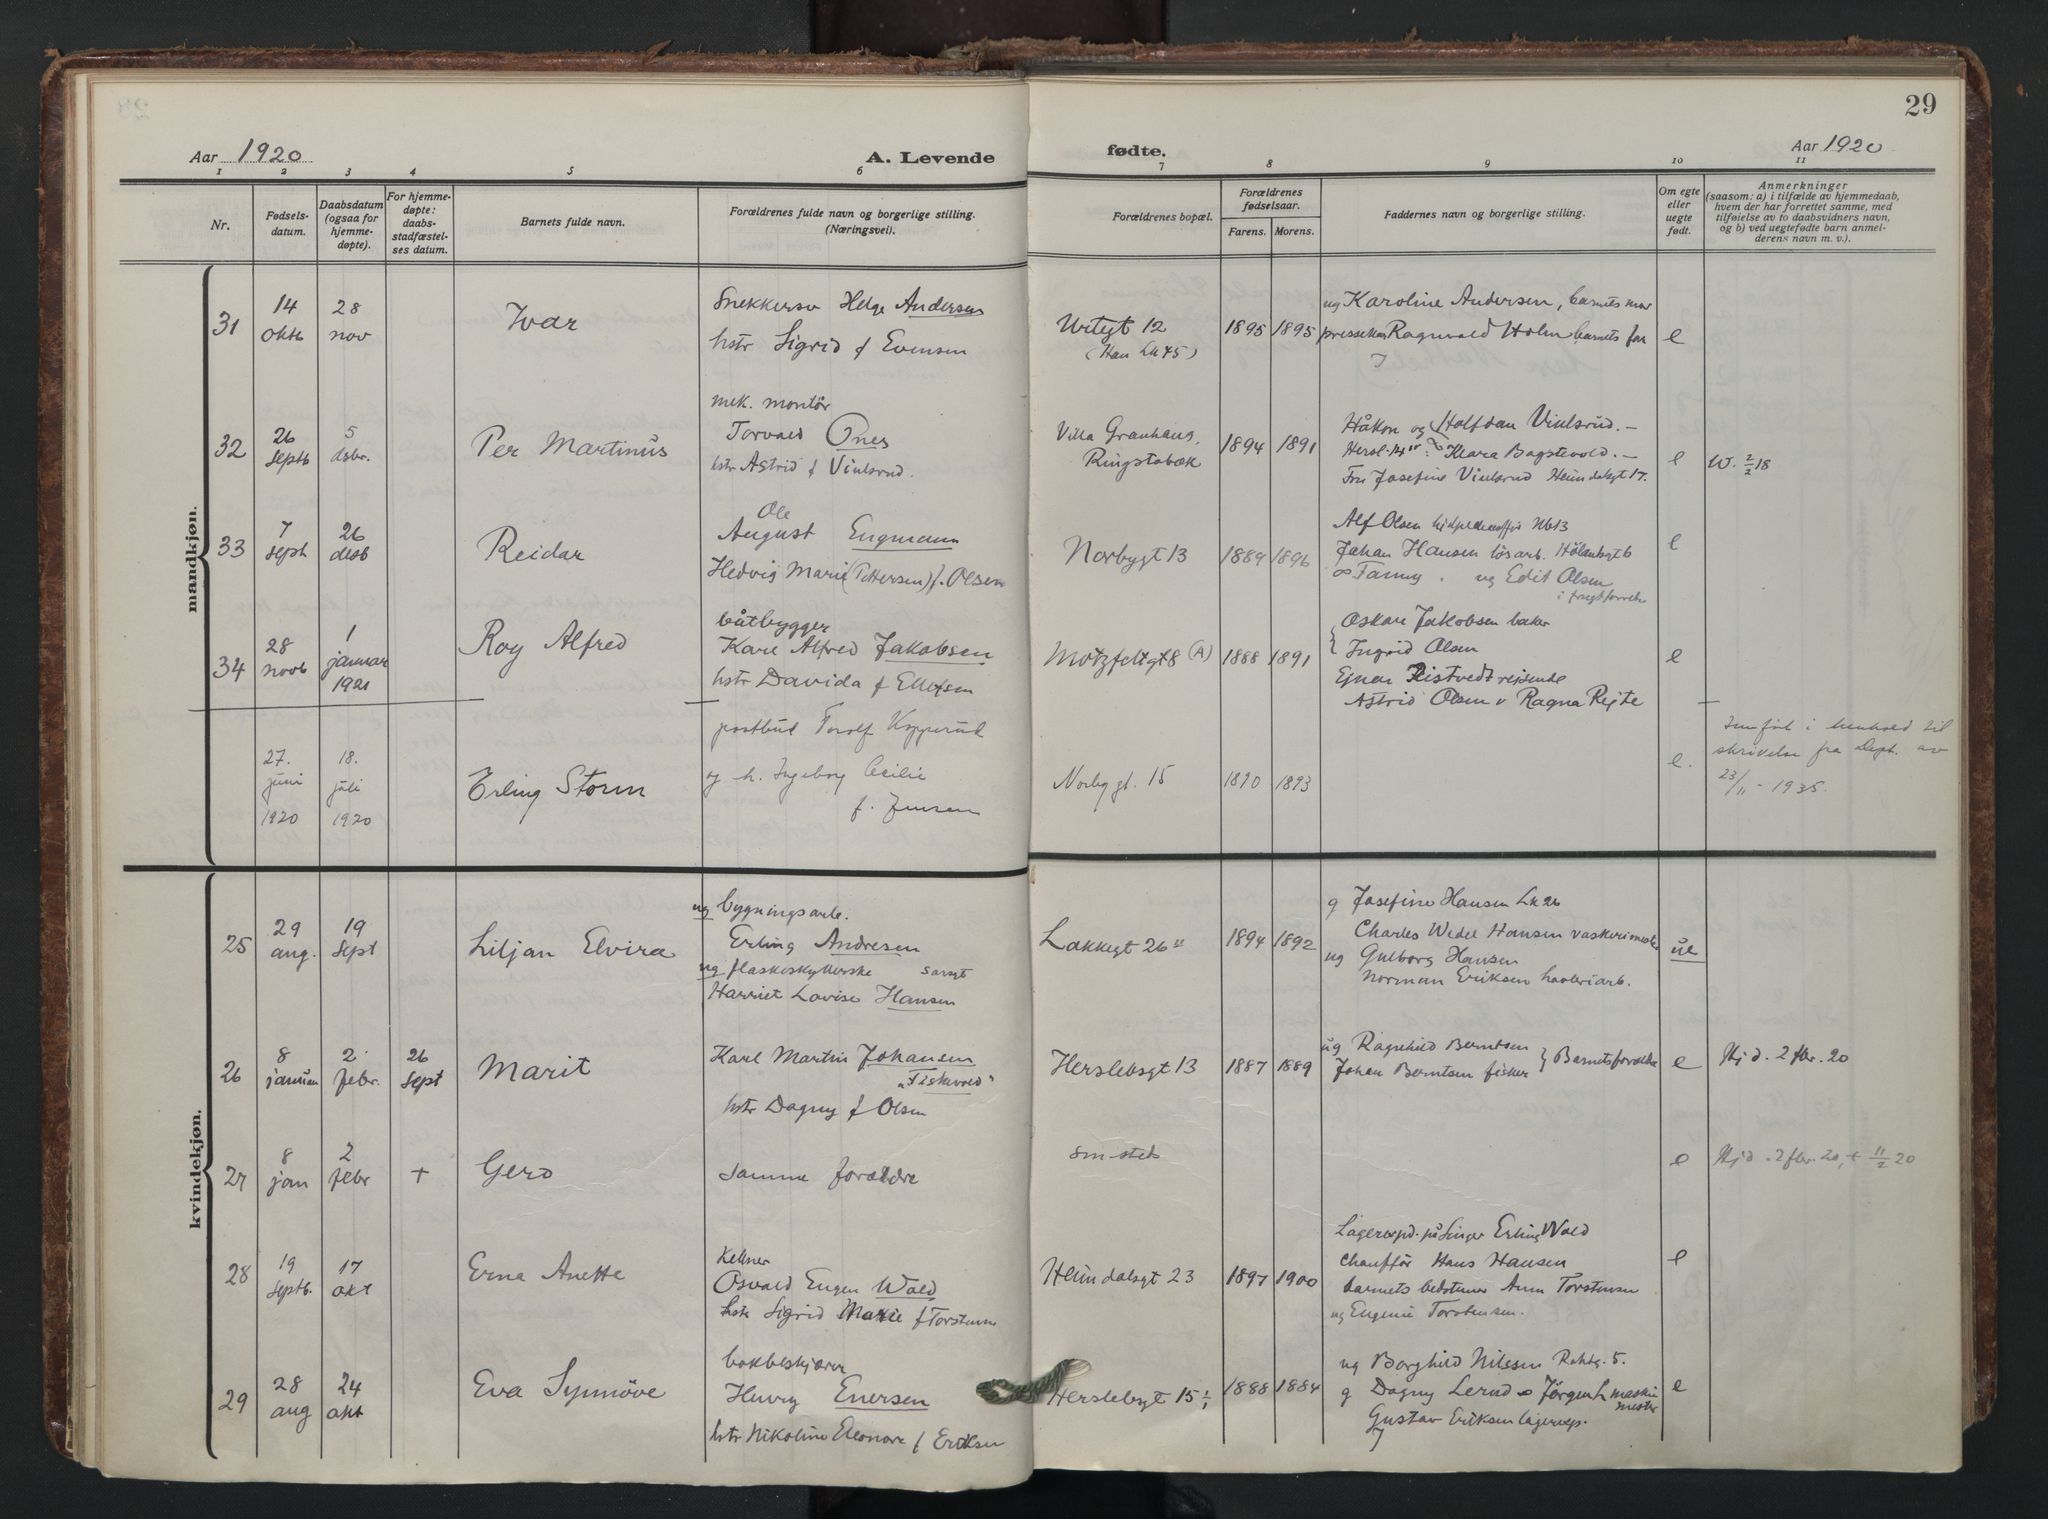 29
Aar 1920
A. Levende
fødte.
Aar 1920
1 2 3 4 5 6 7 8 9 10 11
Nr.
Fødsels-
datum.
Daabsdatum
(ogsaa for
hjemme-
døpte).
For hjemme-
døpte:
daabs-
stadfæstel-
ses datum.
Barnets fulde navn.
Forældrenes fulde navn og borgerlige stilling.
(Næringsvei).
Forældrenes bopæl.
Forældrenes
fødselsaar.
Farens. Morens.
Faddernes navn og borgerlige stilling.
Om egte
eller
uegte
født.
Anmerkninger
(saasom: a) i tilfælde av hjemmedaab,
hvem der har forrettet samme, med
tilføielse av to daabsvidners navn,
og b) ved uegtefødte barn anmel-
derens navn m. v.).
mandkjøn.
31
14
oktb
28
nov
Ivar
Helge Andersen
hstr Sigrid f Evensen
Urtegt 12
1895 1895
ug Karoline Andersen, barnets mor
Ragnvald Holm barnets far
e
32
26
septb
5
dsbr.
Per Martinus
mek. montör
Torvald Ones
hstr Astrid f Viulsrud.
Villa Granhaug,
Ringstabæk
1894 1891
Håkon og Halfdan Viulsrud. –
Klara Bagstevold. –
Fru Josefine Viulsrud Heimdalsgt 17.
e
33
7
sept
26
desb
Reidar
Ole
August Engmann
Hedvig Marie (Pettersen) f. Olsen
Norbygt 13
1889 1896
Alf Olsen
Johan Hansen løsarb.
Fanny. ug Edit Olsen
e
34
28
novb
1
januar
1921
Roy Alfred
båtbygger
Karl Alfred Jakobsen
hstr Davida f Ellefsen
Motzfeltgt 8 (A)
1888 1891
Oskar Jakobsen baker
Ingrid Olsen
Ejnar Ristvedt rejsende
Astrid Olsen v Ragna Rejte
e
27.
juni
1920
18.
juli
1920
Erling Storm
postbud Torolf Kopperud
og h. Ingeborg Cecilie
f. Jensen
Norbygt. 15
1890 1893
e.
Innført i henhold til
skrivelse fra Dept. av
23/11 – 1935.
kvindekjøn.
25
29
aug.
19
sept
Liljan Elvira
ug bygningsarb.
Erling Andresen
ug flaskeskyllerske
Harriet Lovise Hansen
Lakkegt 26
1894 1892
g Josefine Hansen Lk 26
Charles Wedel Hansen
ug Gulborg Hansen
Norman Eriksen
ue
26
8
januar
2
febr.
26
sept
Marit
Karl Martin Johansen
"Fiskvold"
hstr Dagny f Olsen
Herslebsgt 13
1887 1889
ug Ragnhild Berntsen
Johan Berntsen fisker } Barnets forældre
e
Hjd. 2 fbr. 20
27
8
jan
2
febr
+
Gerd
samme forældre
smsteds
e
Hjd. 2 fbr. 20, + 11/2 20
28
19
septb.
17
okt
Erna Anette
Kellner
Osvald Eugen Wold
hstr Sigrid Marie f Torstensen
Heimdalsgt 23
1897 1900
Lagerexpd. på Singer Erling Wold
chauffør Hans Hansen
barnets bedstemor Ann Torstensen
ug Eugenie Torstensen.
e
29
28
aug
24
okt
Eva Synnöve
bokbeskjærer
Henry Enersen
hstr Nikoline Eleonore f Eriksen
Herslebsgt 15
1888 1884
ug Borghild Nilssen 5.
g Dagny Lerud Jörgen L maskin
mester
Gustav Eriksen
e